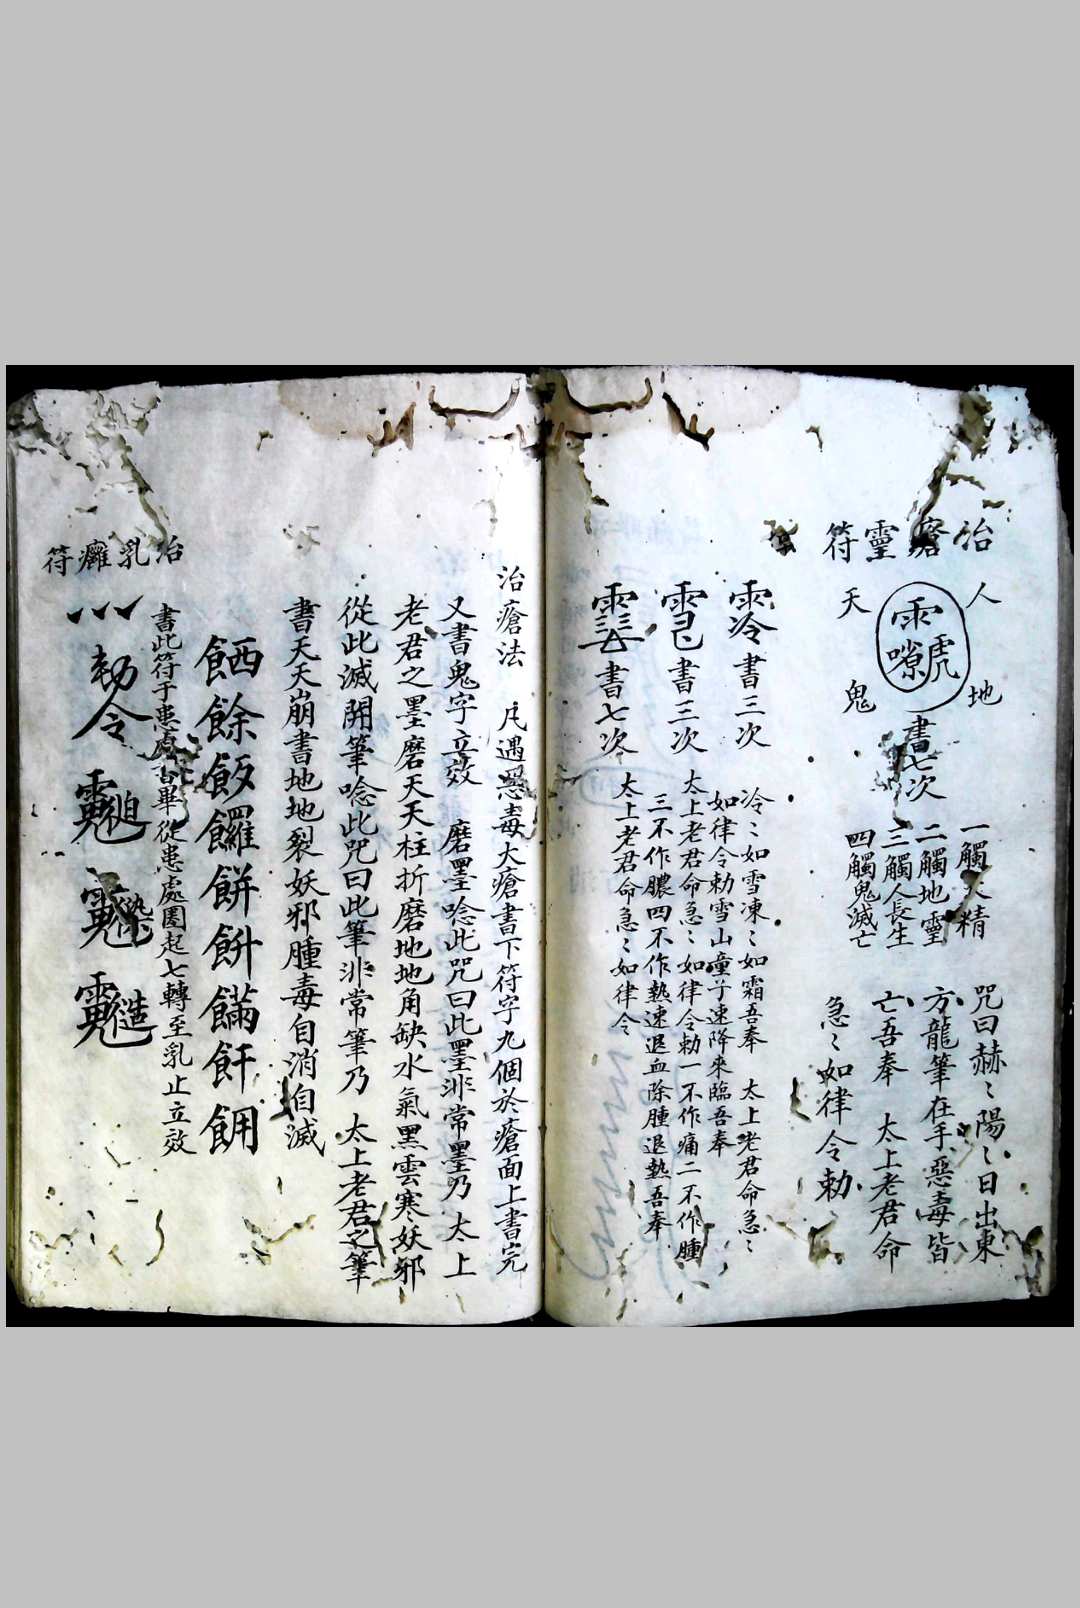 治瘡靈符
人
地
天
鬼
書七次
一觸天精
二觸地靈
三觸人長生
四觸鬼滅亡
咒曰赫〻陽〻日出東
方龍筆在手惡毒皆
亡吾奉 太上老君命
急〻如律令勅
書三次
冷〻如雪凍〻如霜吾奉 太上老君命急〻
如律令勅雪山童子速降來臨吾奉
書三次
太上老君命急〻如律令勅一不作痛二不作腫
三不作膿四不作熱速退血除腫退熱吾奉
書七次
太上老君命急〻如律令
治瘡法 凡遇惡毒大瘡書下符字九個於瘡面上書完
又書鬼字立效 磨墨唸此咒曰此墨非常墨乃 太上
老君之墨磨天天柱折磨地地角缺水氣黑雲寒妖邪
從此滅開筆唸此咒曰此筆非常筆乃 太上老君之筆
書天天崩書地地裂妖邪腫毒自消自滅
餘 飯 饠 餅
治乳癰符
書此符于患處書畢從患處圈起七轉至乳止立效
勅令